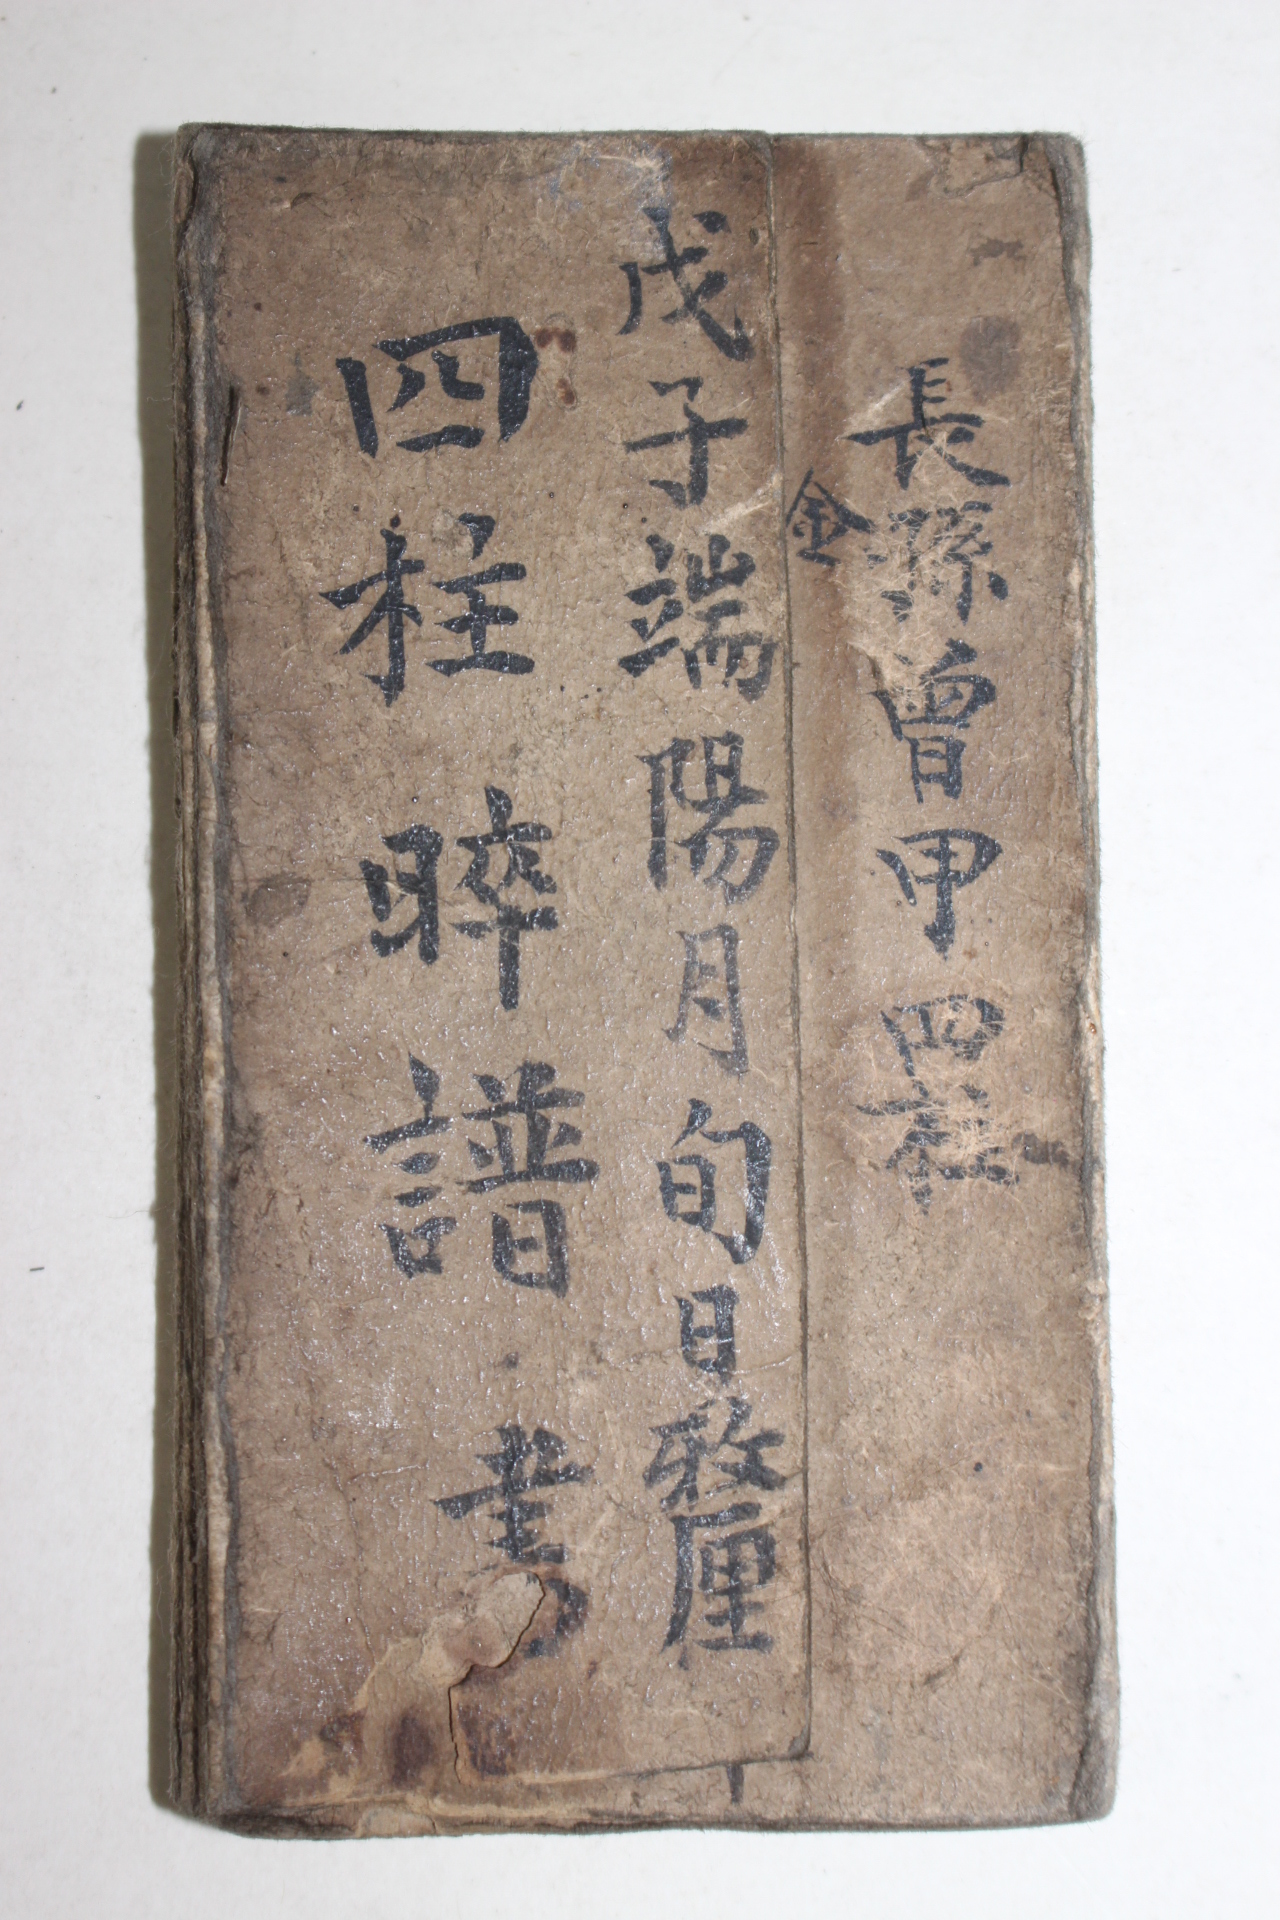 長孫曾甲四柱
金
戊子端陽月旬日敉厘
四柱晬譜書